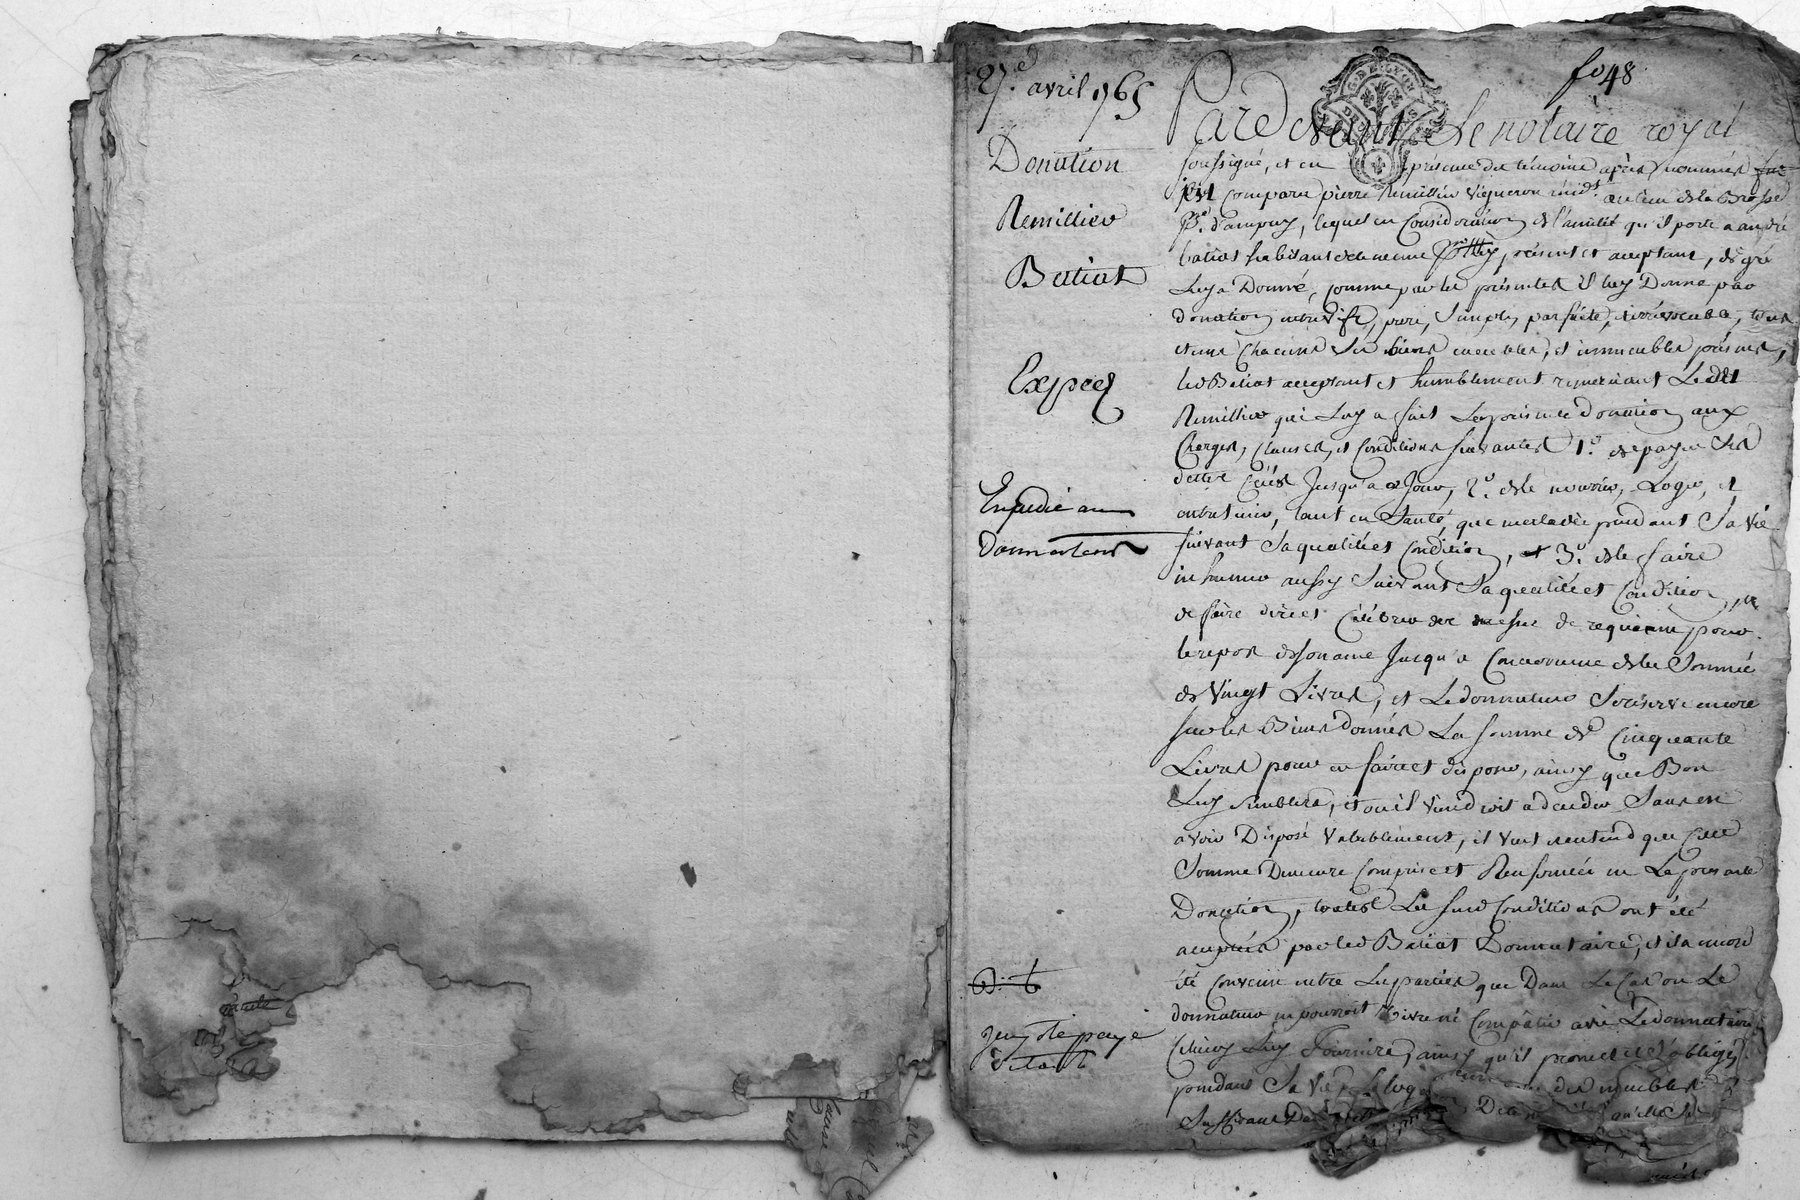 27.e avril 1765
fo 48
Donation
Remillieu
Batiat
Exped
Expedié au
Donnateur
j'ay été payé
Pardevant Le notaire royal
soussigné, et en présence des témoins après nommés
fut comparu pierre Remillieu vigneron résidt. au lieu de la Brosse
psse. d'ampuy, lequel en Considération de l'amitié qu'il porte a andré
batiat habitant de la meme présent et acceptant, de gré
Luy a Donné, comme par les présentes Il luy Donne par
donation entre vifs, pure, Simple, parfaite, et irrévocable, tous
et uns Chacuns Ses biens meubles, et immeubles présens,
led Batiat acceptant et humblement remerciant Ledit
Remillieu qui Luy a fait La présente donation aux
Charges, Clauses, et Conditions suivantes 1.o de payer Ses
dettes Créés Jusqu'a ce Jour, 2.o de le nourrir, Loger, et
entretenir, tant en Santé, que maladie pendant Sa vie
suivant Sa qualité et Condition, et 3.o de le faire
inhumer aussy Suivant Sa qualité et Condition,
de faire dire et Célébrer des messes de requiem pour
le repos de son ame Jusqu'a Concurrence de la Somme
de Vingt Livres, et Le donnateur Se réserve encore
sur les Biens donnés La somme de Cinquante
Livres pour en faire et disposer, ainsy que Bon
Luy Semblera, et ou il viendroit a décéder Sans en
avoir Disposé valablement, il veut et entend que Cette
Somme Demeure Comprise et Renfermée en La présente
Donation, toutes Les sus Conditions ont été
acceptées par led Batiat Donnataire, et il a encore
été Convenu entre Les parties que Dans Le Cas ou Le
donnateur ne pourroit Vivre ni Compatir avec Le donnataire
Celuicy Luy Fournira, ainsy qu'il promet et s'oblige,
pendant Sa Vie des meubles
Suffisant